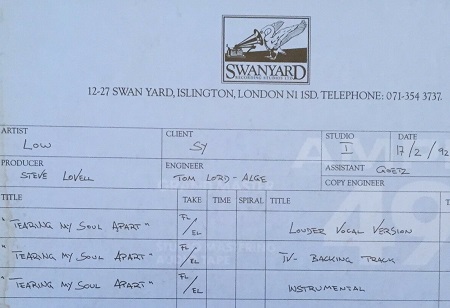 SWANYARD
RECORDING STUDIOS LTD
12-27 SWAN YARD, ISLINGTON, LONDON N1 1SD. TELEPHONE: 071-354 3737.
ARTIST CLIENT STUDIO DATE
LOW SY I 17/2/92
PRODUCER ENGINEER ASSISTANT GOETZ
STEVE LOVELL TOM LORD-ALGE COPY ENGINEER
TITLE TAKE TIME SPIRAL TITLE
"TEARING MY SOUL APART" FL/EL LOUDER VOCAL VERSION
"TEARING MY SOUL APART" FL/EL TV- BACKING TRACK
"TEARING MY SOUL APART" FL/EL INSTRUMENTAL